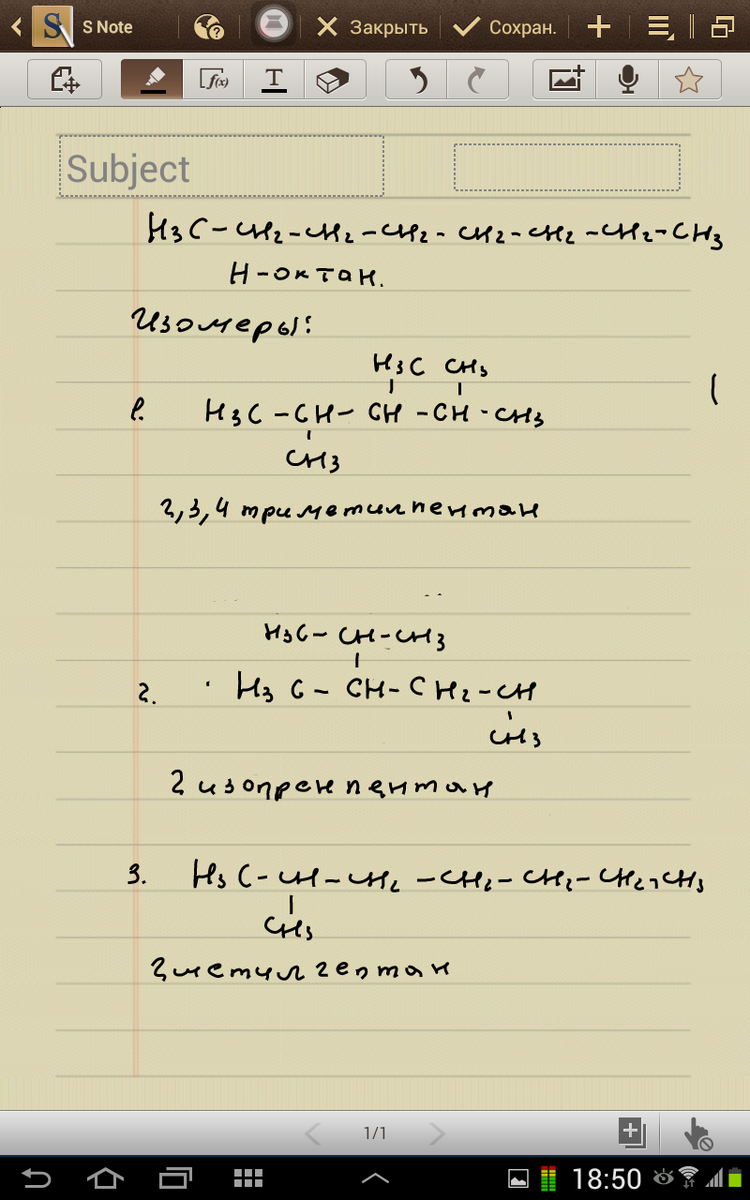 S Note Закрыть Сохран.
f(x) T
Subject
H3C-CH2-CH2-CH2-CH2-CH2-CH2-CH3
Н-октан.
Изомеры:
H3C CH3
1. H3C-CH-CH-CH-CH3
CH3
2,3,4 триметилпентан
H3C-CH-CH3
2. H3C-CH-CH2-CH
CH3
2 изопренпентан
3. H3C-CH-CH2-CH2-CH2-CH2-CH3
CH3
2метилгептан
1/1
18:50